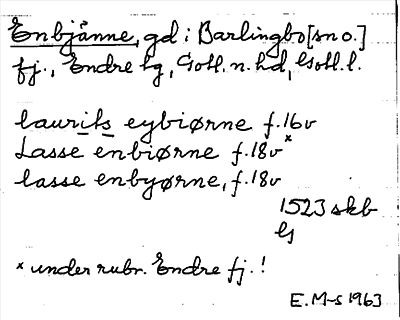 Enbjänne, gd i Barlingbo [sn o.]
fj., Endre tg, Gotl. n. hd, Gotl. l.
lauriks eybiørne f. 16v
Lasse enbiørne f. 18v*
lasse enbyørne, f. 18v
1523 skb
* under rubr. Endre fj.!
E. M-s 1963